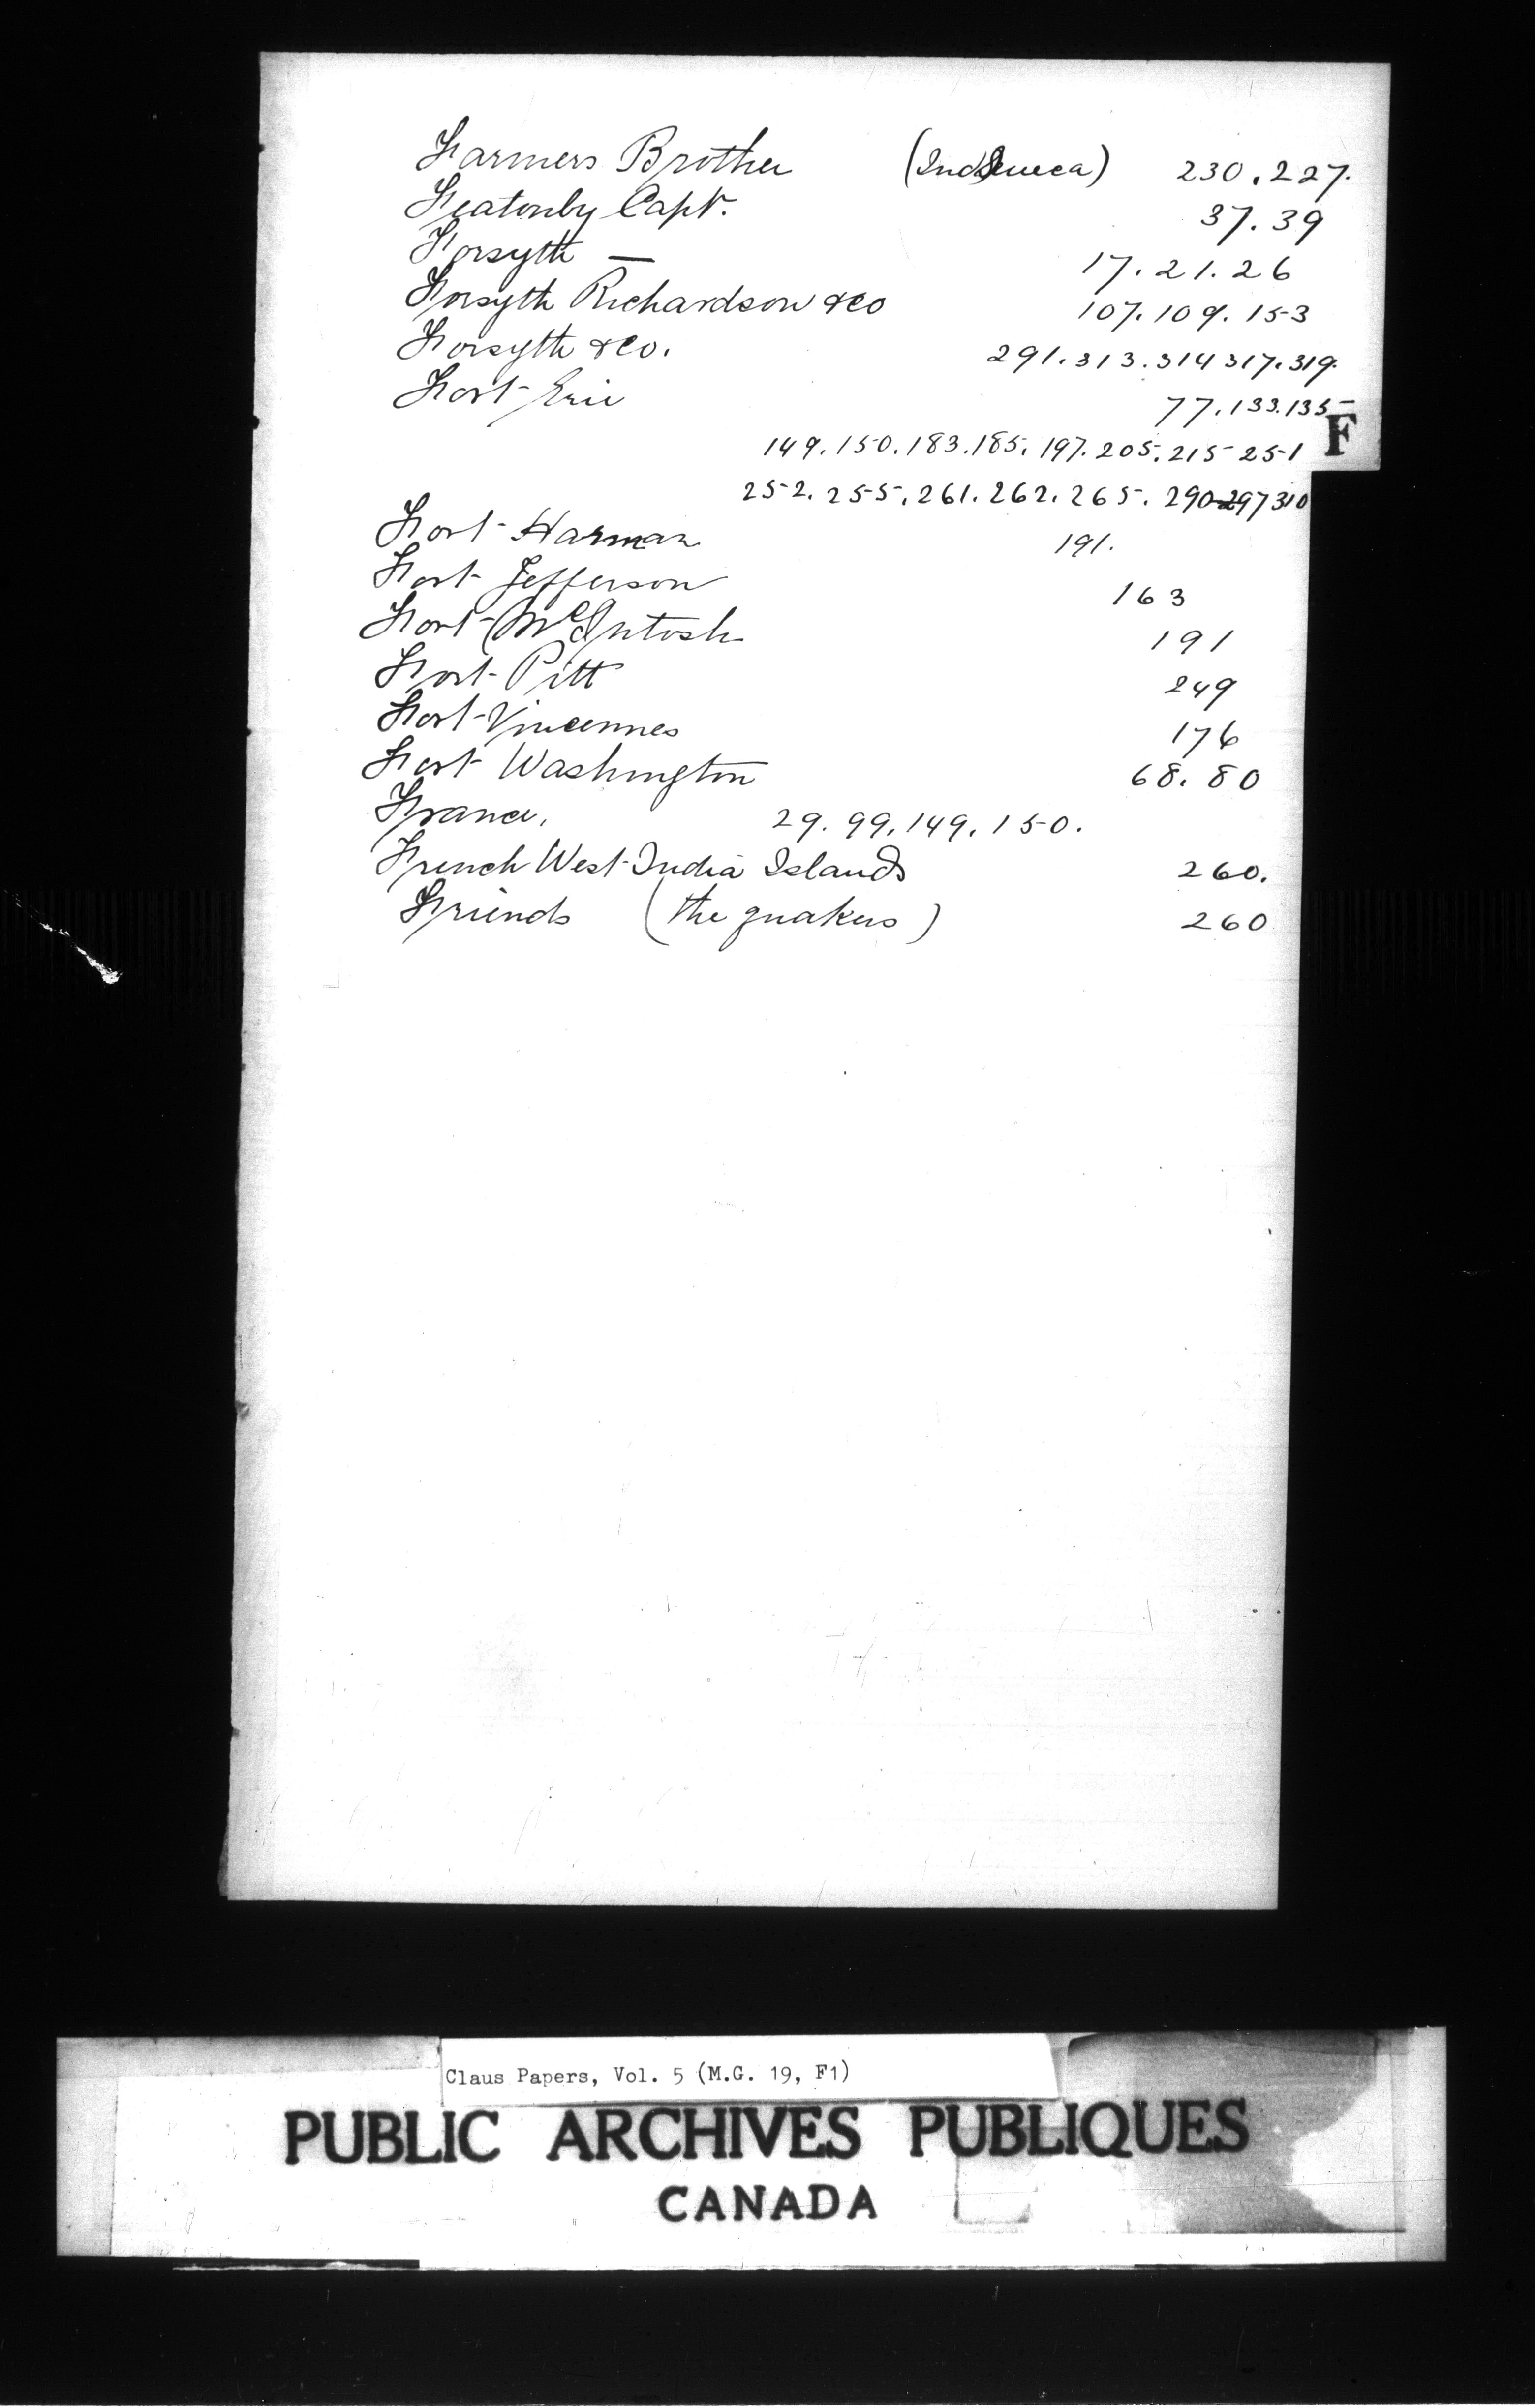 Farmers Brother (Ind Seneca) 230.227.
Featonby Capt. 37.39
Forsyth — 17.21.26
Forsyth Richardson & Co 107.109.153
Forsyth & Co. 291.313.314 317.319.
Fort Erie 77.133.135
F
149.150.183.185.197.205.215 251
252.255.261.262.265.290 297 310
Fort Harman 191.
Fort Jefferson 163
Fort McIntosh 191
Fort Pitt 249
Fort Vincennes 176
Fort Washington 68.80
France, 29.99.149.150.
French West India Islands 260.
Friends (the quakers) 260
Claus Papers, Vol. 5 (M.G. 19, F1)
PUBLIC ARCHIVES PUBLIQUES
CANADA